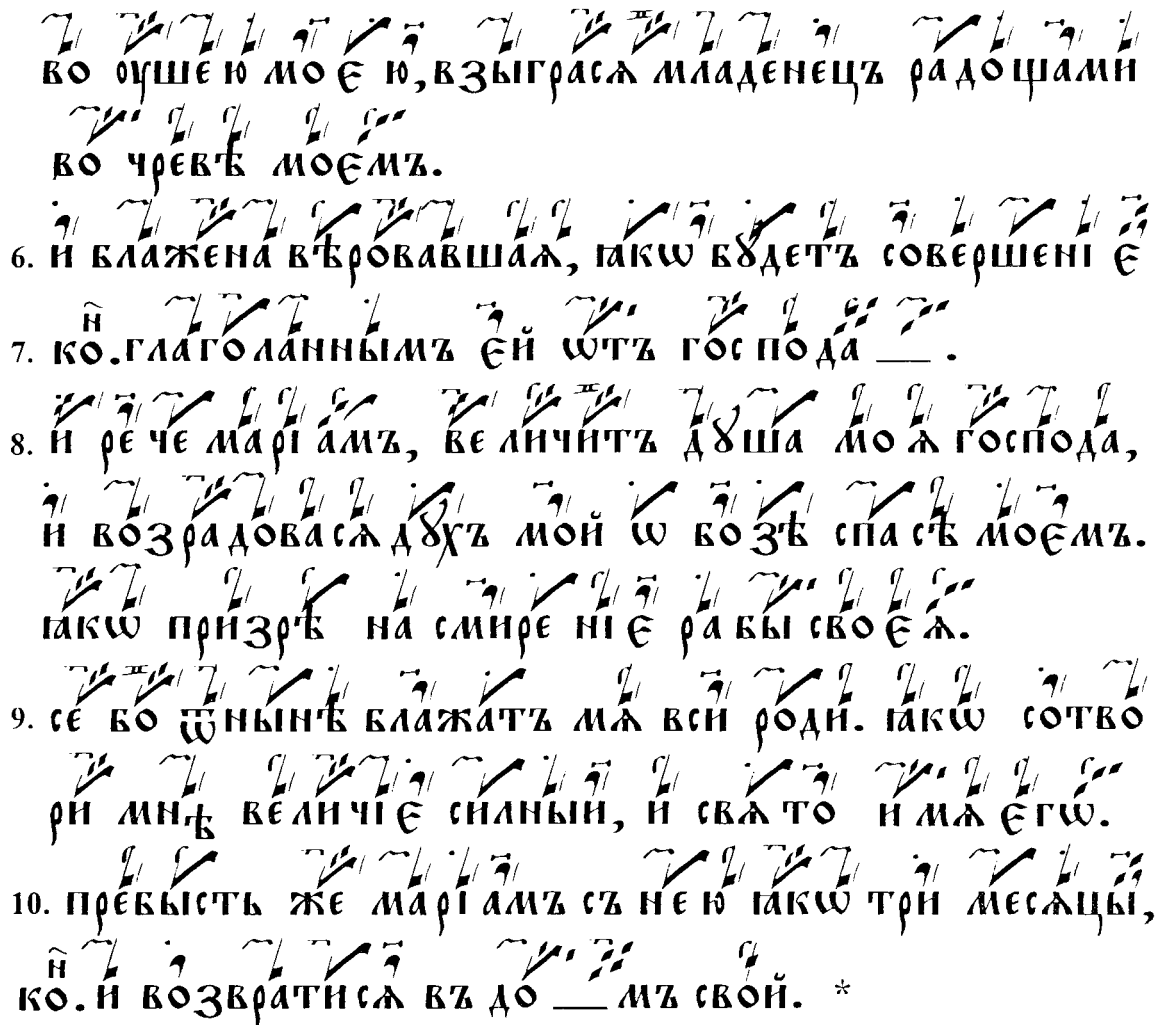 во ѹшею моє ю, взыграсѧ младенецъ радощами
во чревѣ моємъ.
6. и блажена вѣровавшаѧ, ꙗкѡ бꙋдетъ совершенї є
7. ко҃н. глаголаннымъ єй ѡтъ господа __ .
8. и рече марїамъ, величитъ дꙋша моѧ господа,
и возрадовасѧ дꙋхъ мой ѡ бозѣ спасѣ моємъ.
ꙗкѡ призрѣ на смиренїє рабы своєѧ.
9. се бо ѿнынѣ блажатъ мѧ вси роди. ꙗкѡ сотво
ри мнѣ величїє силный, и свѧто имѧ єгѡ.
10. пребысть же марїамъ съ нею ꙗкѡ три месѧцы,
ко҃н. и возвратисѧ въ до __ мъ свой. *